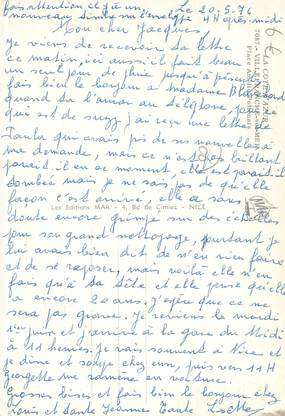 fais attention il y a un
nouveau timbre sur l'enveloppe
Le 20-5-76
4H après-midi
Mon cher Jacques,
Je viens de recevoir ta lettre
ce matin, ici aussi il fait beau
un seul jour de pluie jusqu'à présent
fais bien le bonjour à madame
quand tu l'auras au téléphone,
qui est de j'ai reçu une lettre de
Paula qui avais pis de ses nouvelles à
ma demande, mais ce n'est pas brillant
parait il en ce moment, elle est parait-il
tombée mais je ne sais pas de quelle
façon c'est arrivé, elle a sans
doute encore grimpé sur des échelles
Les Editions MAR - 4, Bd de Cimiez - NICE
pour son grand nettoyage, pourtant je
lui avais bien dit de n'en rien faire
et de se reposer, mais voilà elle n'en
fais qu'à sa tête et elle pense qu'elle
a encore 20 ans, j'espère que ce ne
sera pas grave. Je reviens le mardi
1er juin et j'arrive à la gare du Midi
à 11 heures. Je vais souvent à Nice et
je dine et soupe chez eux, puis vers 11H
Georgette me ramène en voiture.
Grosses bises et fais bien le bonjour chez
Louis et tante Jeanne Tante Lisette
6 €
7687 - VILLEFRANCHE-sur-MER
LA COTE D'AZUR